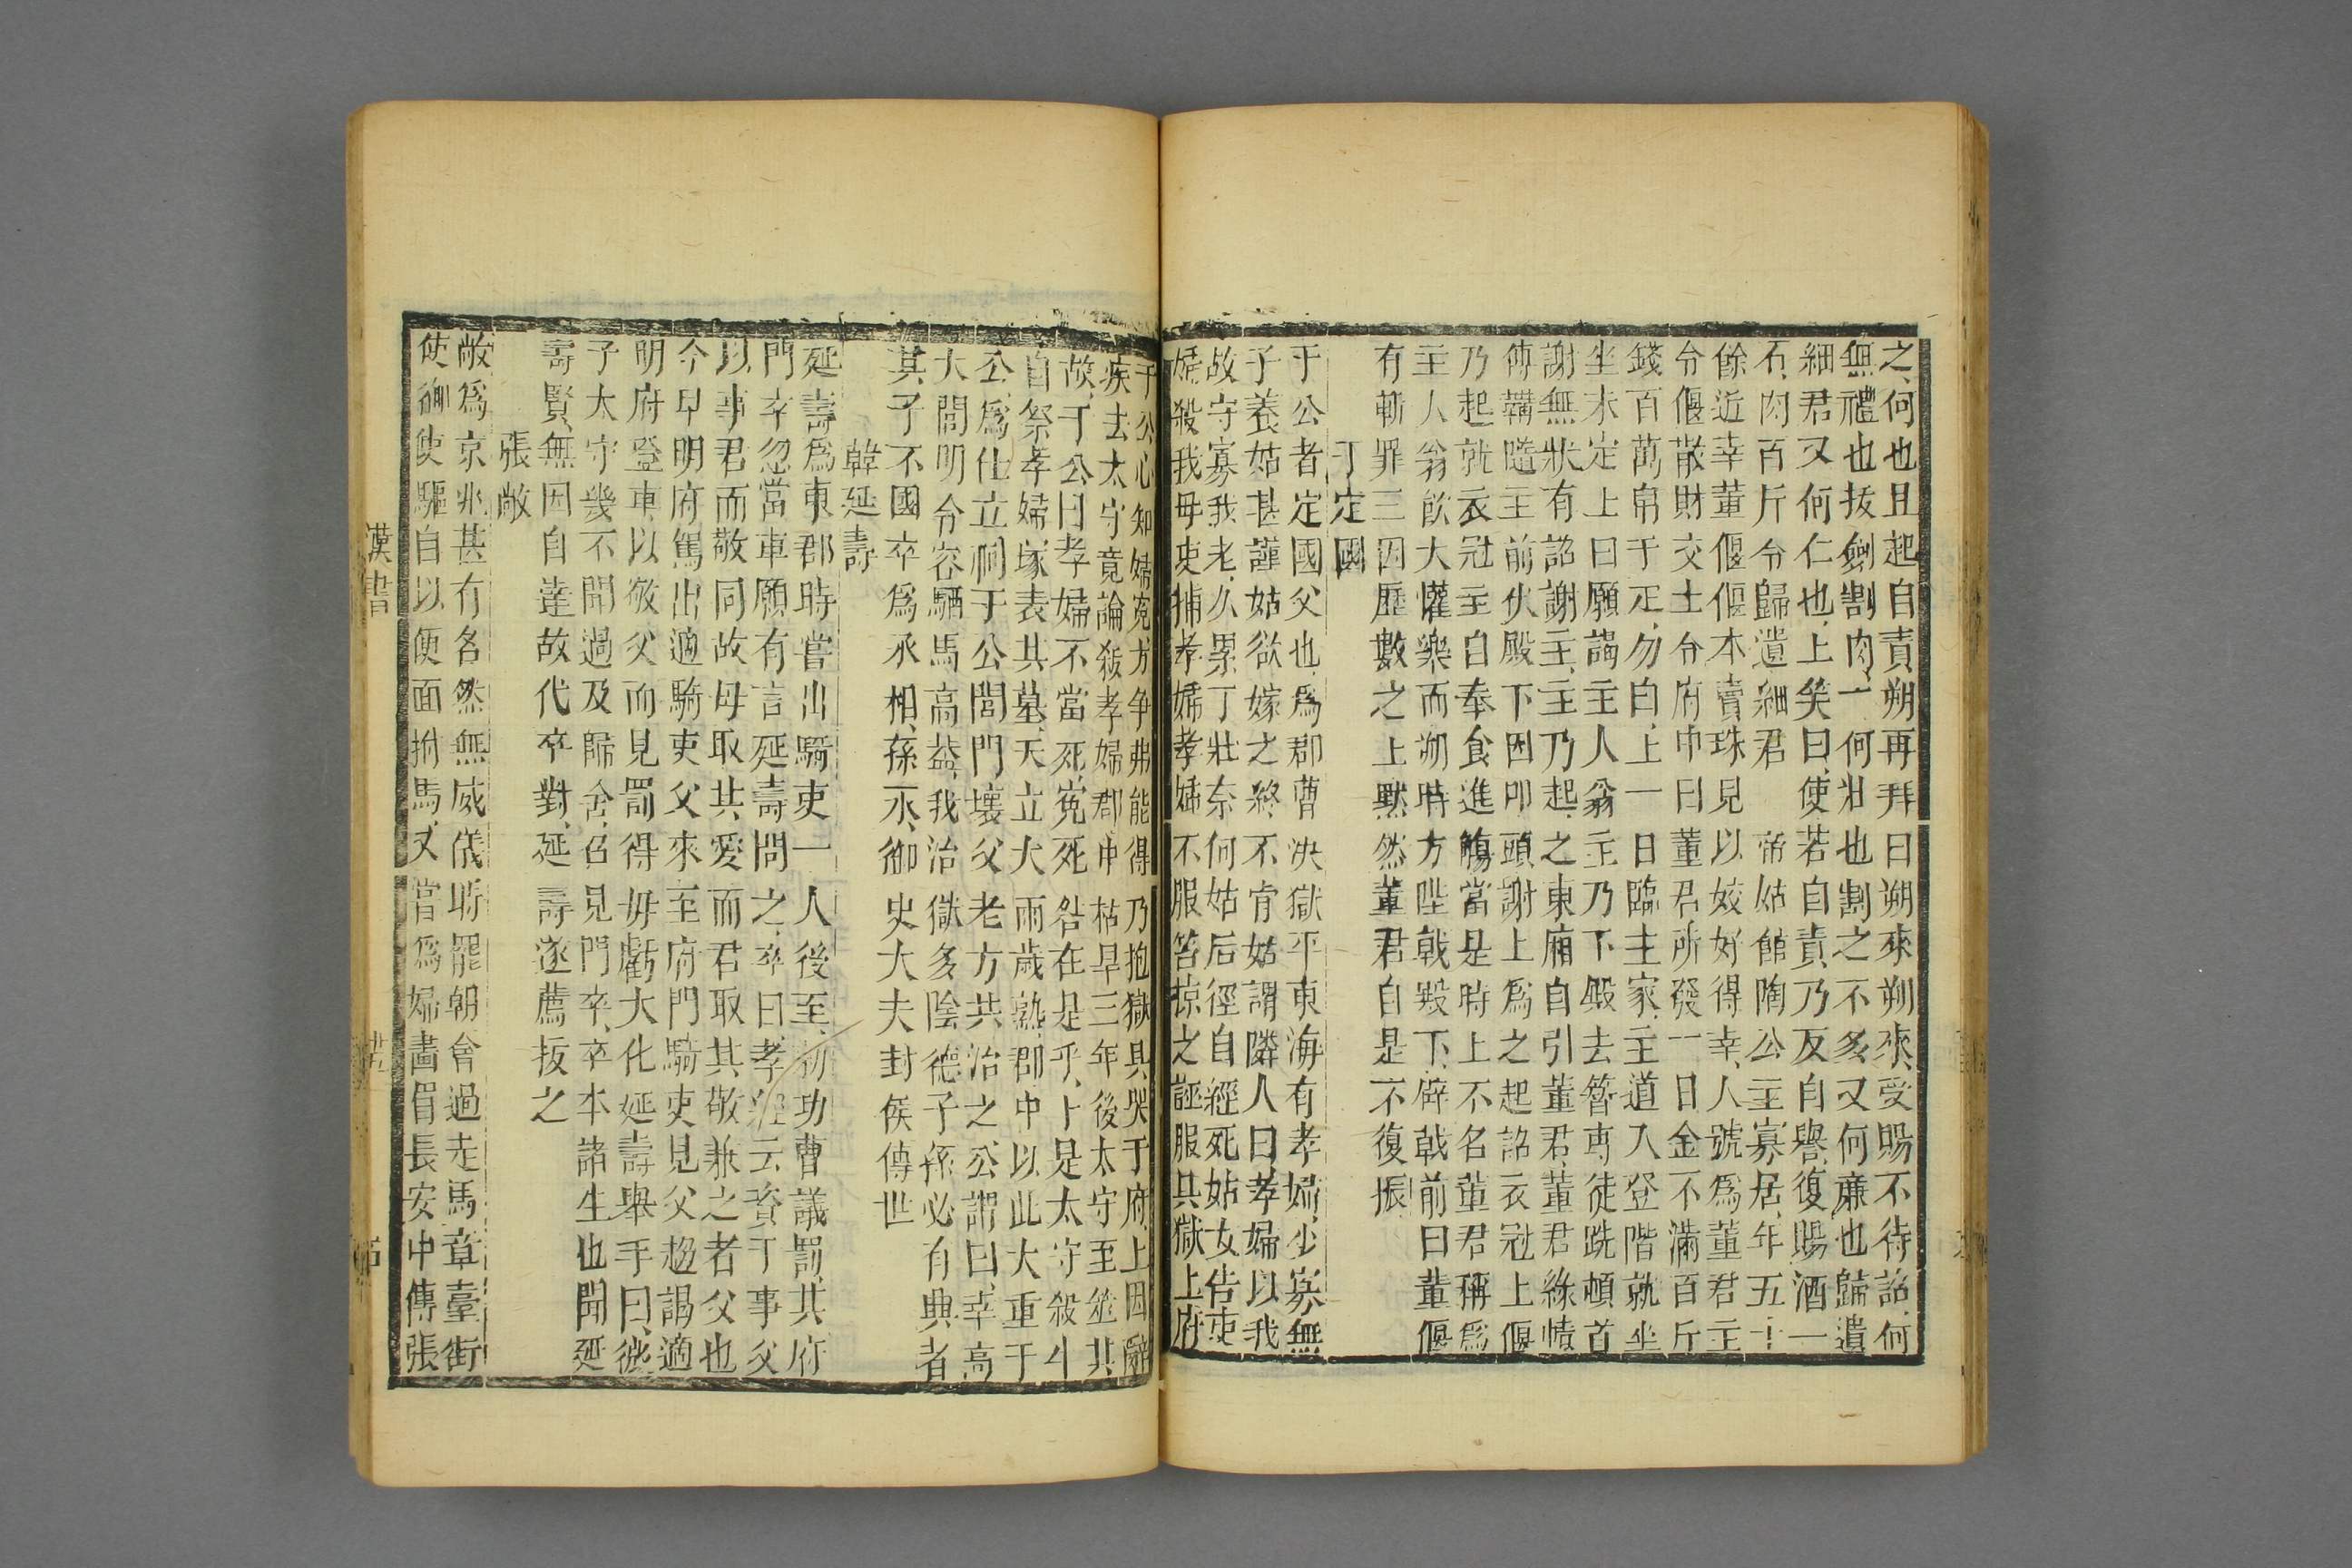 之何也且起自責朔再拜曰朔來朔來受賜不待詔何
無禮也拔劍割肉一何壯也割之不多又何廉也歸遺
細君又何仁也上笑曰使若自責乃反自譽復賜酒一
石肉百斤令歸遺細君　帝姑館陶公主寡居年五十
餘近幸董偃偃本賣珠見以姣好得幸人號爲董君主
令偃散財交士令府中曰董君所發一日金不滿百斤
錢百萬帛千疋勿白上一日臨主家主道入登階就坐
坐未定上曰願謁主人翁主乃下殿去簪專徒跣頓首
謝無狀有詔謝主主乃起之東廂自引董君董君綠幘
傅韝隨主前伏殿下因叩頭謝上爲之起詔衣冠上偃
乃起就衣冠主自奉食進觴當是時上不名董君稱爲
主人翁飮大懽樂而朔時方陛戟殿下辟戟前曰董偃
有斬罪三因歷數之上默然董君自是不復振
丁定國
于公者定國父也爲郡曹決獄平東海有孝婦少寡無
子養姑甚謹姑欲嫁之終不肯姑謂隣人曰孝婦以我
故守寡我老久累丁壯奈何姑后徑自經死姑女告吏
婦殺我母吏捕孝婦孝婦不服笞掠之誣服具獄上府
于公心知婦寃力爭弗能得乃抱獄具哭于府上因辭
疾去太守竟論殺孝婦郡中枯旱三年後太守至筮其
故于公曰孝婦不當死寃死咎在是乎于是太守殺牛
自祭孝婦塚表其墓天立大雨歲熟郡中以此大重于
公爲仕立祠于公閭門壞父老方共治之公謂曰幸高
大閭明令容駟馬高葢我治獄多陰德子孫必有興者
其子不國卒爲丞相孫永御史大夫封侯傳世
韓延壽
延壽爲東郡時嘗出騎吏一人後至勑功曹議罰其府
門卒忽當車願有言延壽問之卒曰孝經云資于事父
以事君而敬同故母取其愛而君取其敬兼之者父也
今旦明府駕出適騎吏父來至府門騎吏見父趨謁適
明府登車以敬父而見罰得毋虧大化延壽舉手曰微
子太守幾不聞過及歸舍召見門卒卒本諸生也聞延
壽賢無因自達故代卒對延壽遂薦拔之
張敞
敞爲京兆甚有名然無威儀時罷朝會過走馬章臺街
使御使驅自以便面拊馬又嘗爲婦畫眉長安中傳張
漢書
廿五